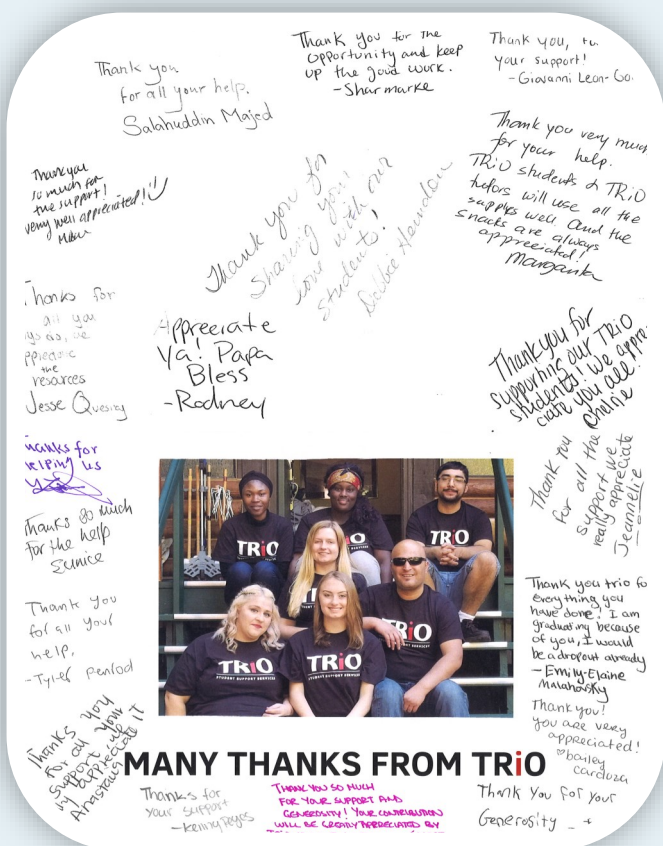 Thank you
for all your help.
Salahuddin Majed
Thank you for the
opportunity and keep
up the good work.
-Sharmarke
Thank you,
your support!
-Giovanni Leon-Go.
Thankyou
so much for
the support!
very well appreciated!
Thank you for
Sharing your
love with our
students!
Debbie Herndon
Thank you very much
for your help.
TRiO students & TRiO
tutors will use all the
supplies well. And the
snacks are always
appreciated!
Margarita
Thanks for
all you
guys do, we
appreciate
the
resources
Jesse
Appreciate
Ya! Papa
Bless
-Rodney
Thankyou for
supporting our TRiO
students! We appre-
ciate you all.
Thanks for
helping us
Thank you
for all the
support we
really appreciate
Jeannelie
Thanks so much
for the help
Eunice
Thank you
for all your
help,
-Tyler Penrod
Thank you trio fo
everything you
have done! I am
graduating because
of you, I would
be a dropout already
-Emily-Elaine
Malahovsky
Thank you!
you are very
appreciated!
♡bailey
cardoza
Thanks
for all
your
support
appreciate it
TRiO
TRiO
TRiO
STUDENT SUPPORT SERVICES
TRiO
TRiO
STUDENT SUPPORT SERVICES
TRiO
STUDENT SUPPORT SERVICES
MANY THANKS FROM TRiO
Thanks for
your support
-Kenny Reyes
THANK YOU SO MUCH
FOR YOUR SUPPORT AND
GENEROSITY! YOUR CONTRIBUTION
WILL BE GREATLY APPRECIATED BY
Thank you for your
Generosity